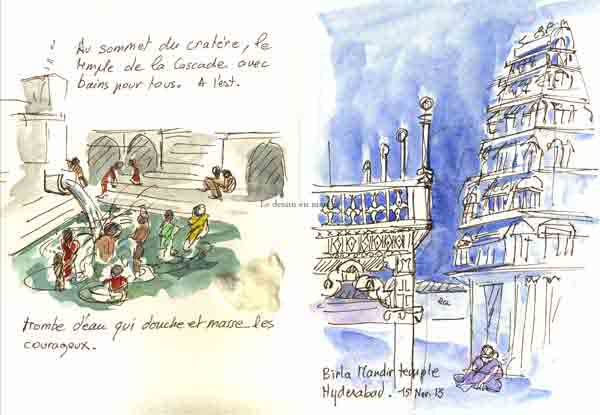 Au sommet du cratère, le
temple de la Cascade avec
bains pour tous. A l'est.
trombe d'eau qui douche et masse les
courageux.
Birla Mandir temple
Hyderabad. 15 Nov. 13